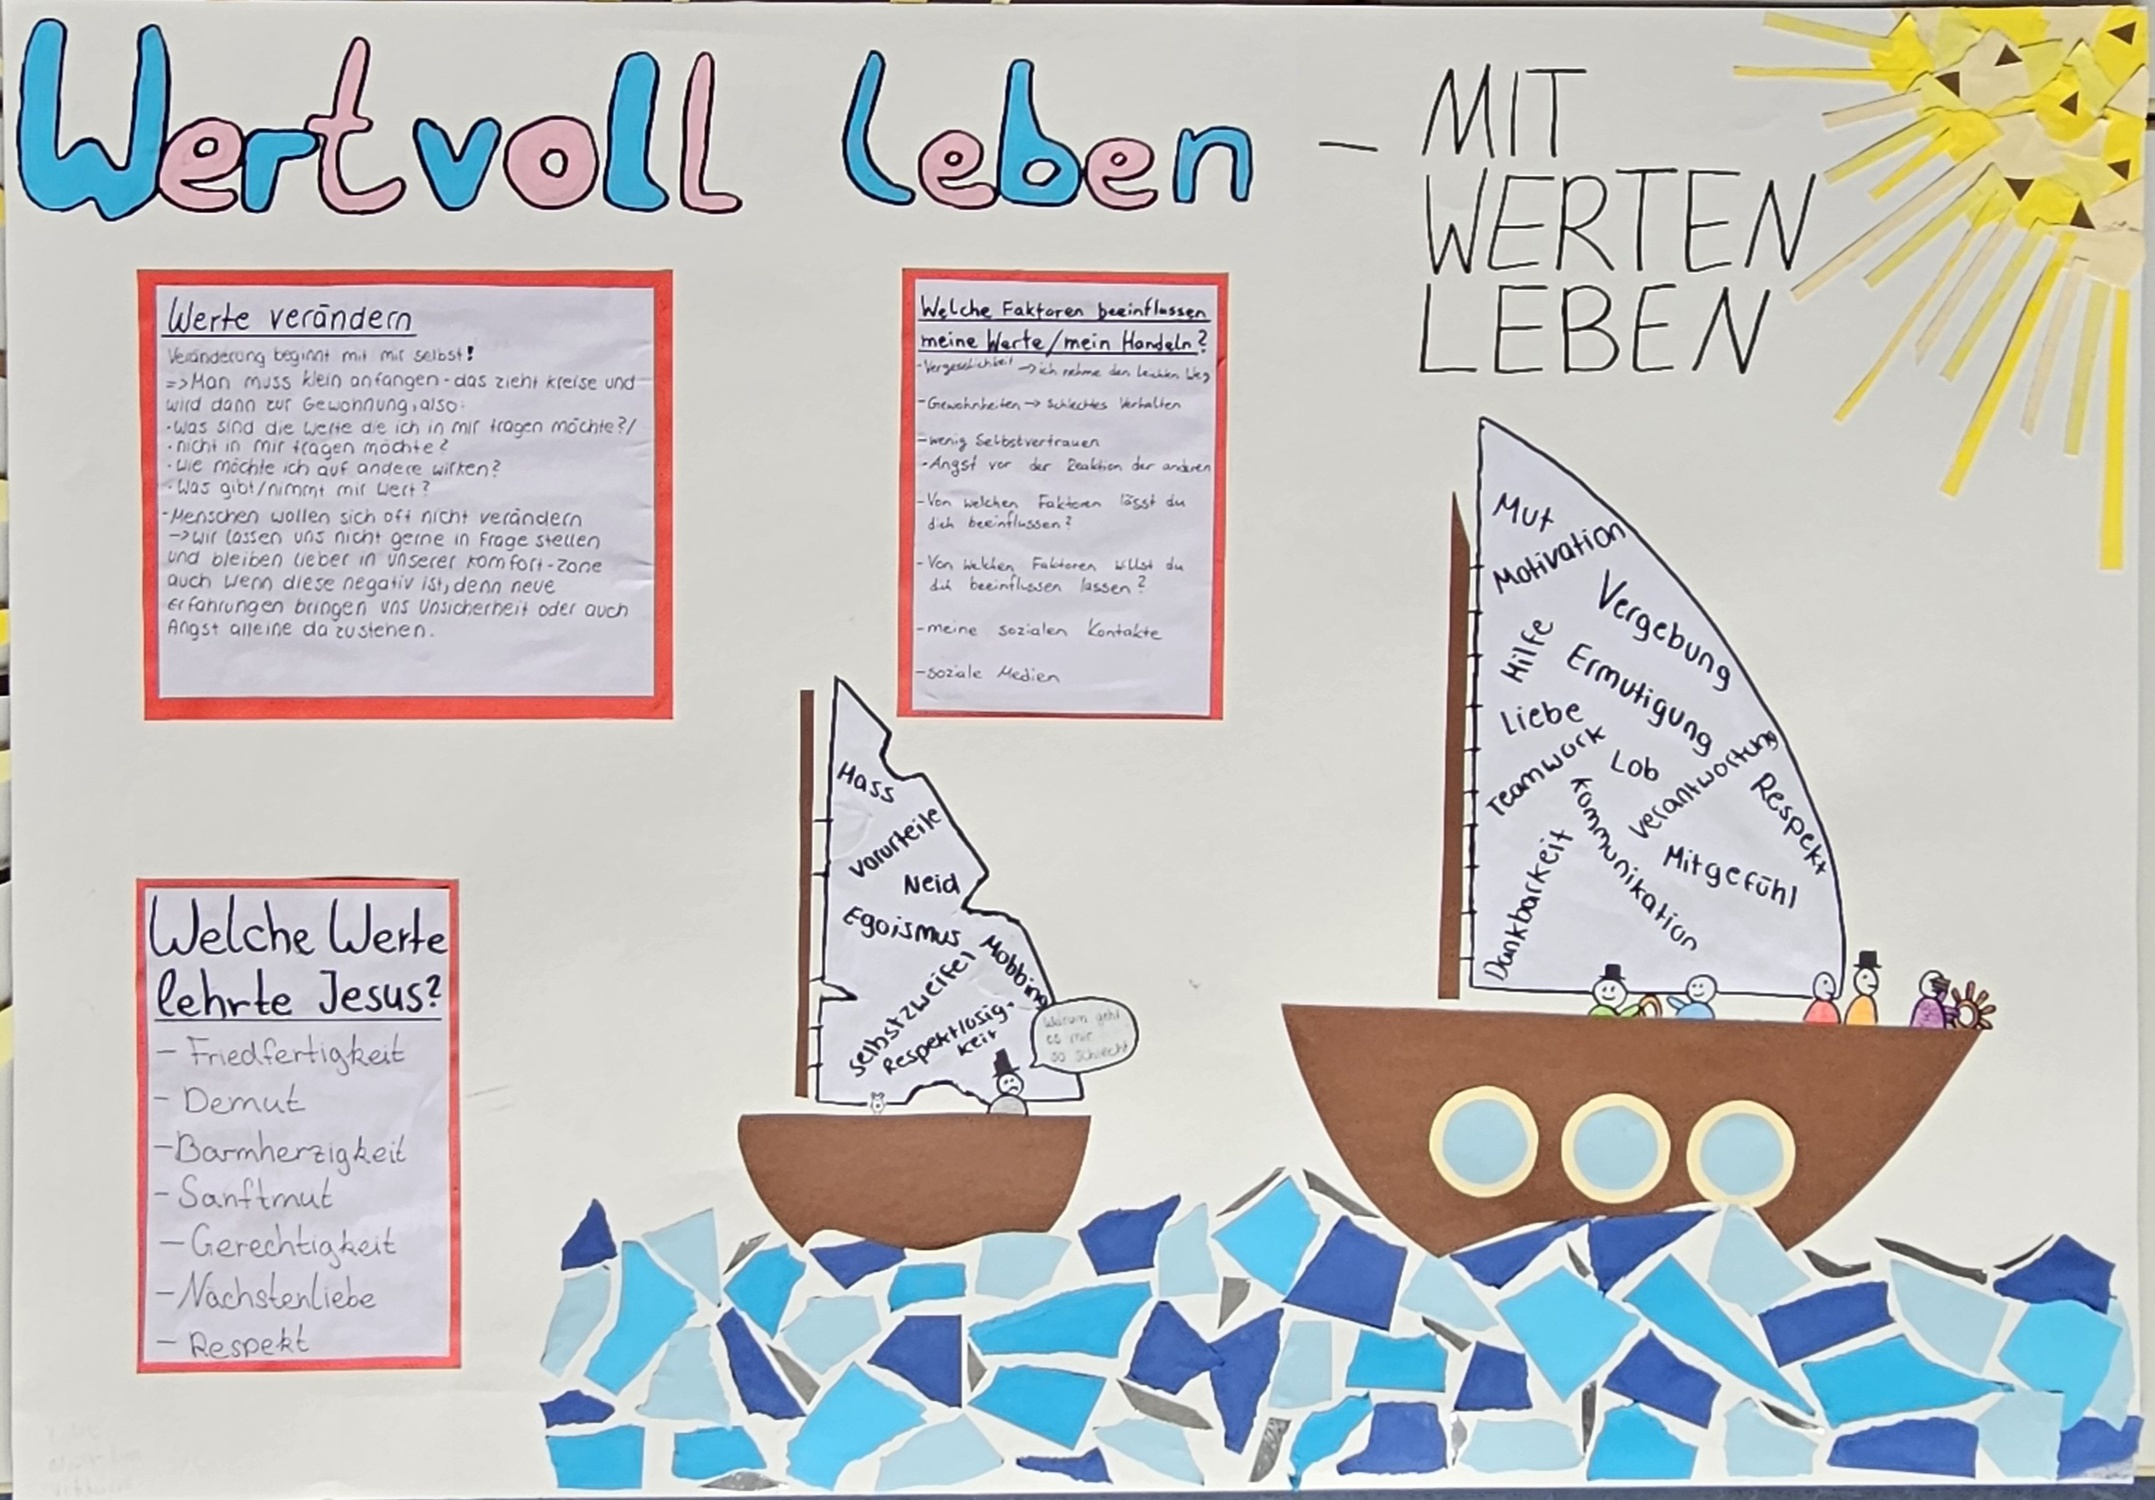 Wertvoll leben – MIT
WERTEN
LEBEN
Werte verändern
Veränderung beginnt mit mir selbst!
=>Man muss klein anfangen - das zieht kreise und
wird dann zur Gewohnung, also:
·Was sind die Werte die ich in mir tragen möchte?/
·nicht in mir tragen möchte?
·Wie möchte ich auf andere wirken?
·Was gibt/nimmt mir Wert?
-Menschen wollen sich oft nicht verändern
->wir lassen uns nicht gerne in Frage stellen
und bleiben lieber in unserer Komfort-Zone
auch wenn diese negativ ist, denn neue
Erfahrungen bringen uns Unsicherheit oder auch
Angst alleine da zu stehen.
Welche Faktoren beeinflussen
meine Werte/mein Handeln?
-Vergesslichkeit -> ich nehme den leichten Weg
-Gewohnheiten -> schlechtes Verhalten
-wenig Selbstvertrauen
-Angst vor der Reaktion der anderen
-Von welchen Faktoren lässt du
dich beeinflussen?
-Von welchen Faktoren willst du
dich beeinflussen lassen?
-meine sozialen Kontakte
-soziale Medien
Welche Werte
lehrte Jesus?
- Friedfertigkeit
- Demut
-Barmherzigkeit
-Sanftmut
-Gerechtigkeit
-Nächstenliebe
-Respekt
Hass
Vorurteile
Neid
Egoismus
Mobbing
Selbstzweifel
Respektlosig-
keit
Warum geht
es mir
so schlecht
Mut
Motivation
Vergebung
Hilfe
Ermutigung
Liebe
Teamwork
Lob
Verantwortung
Respekt
Kommunikation
Mitgefühl
Dankbarkeit